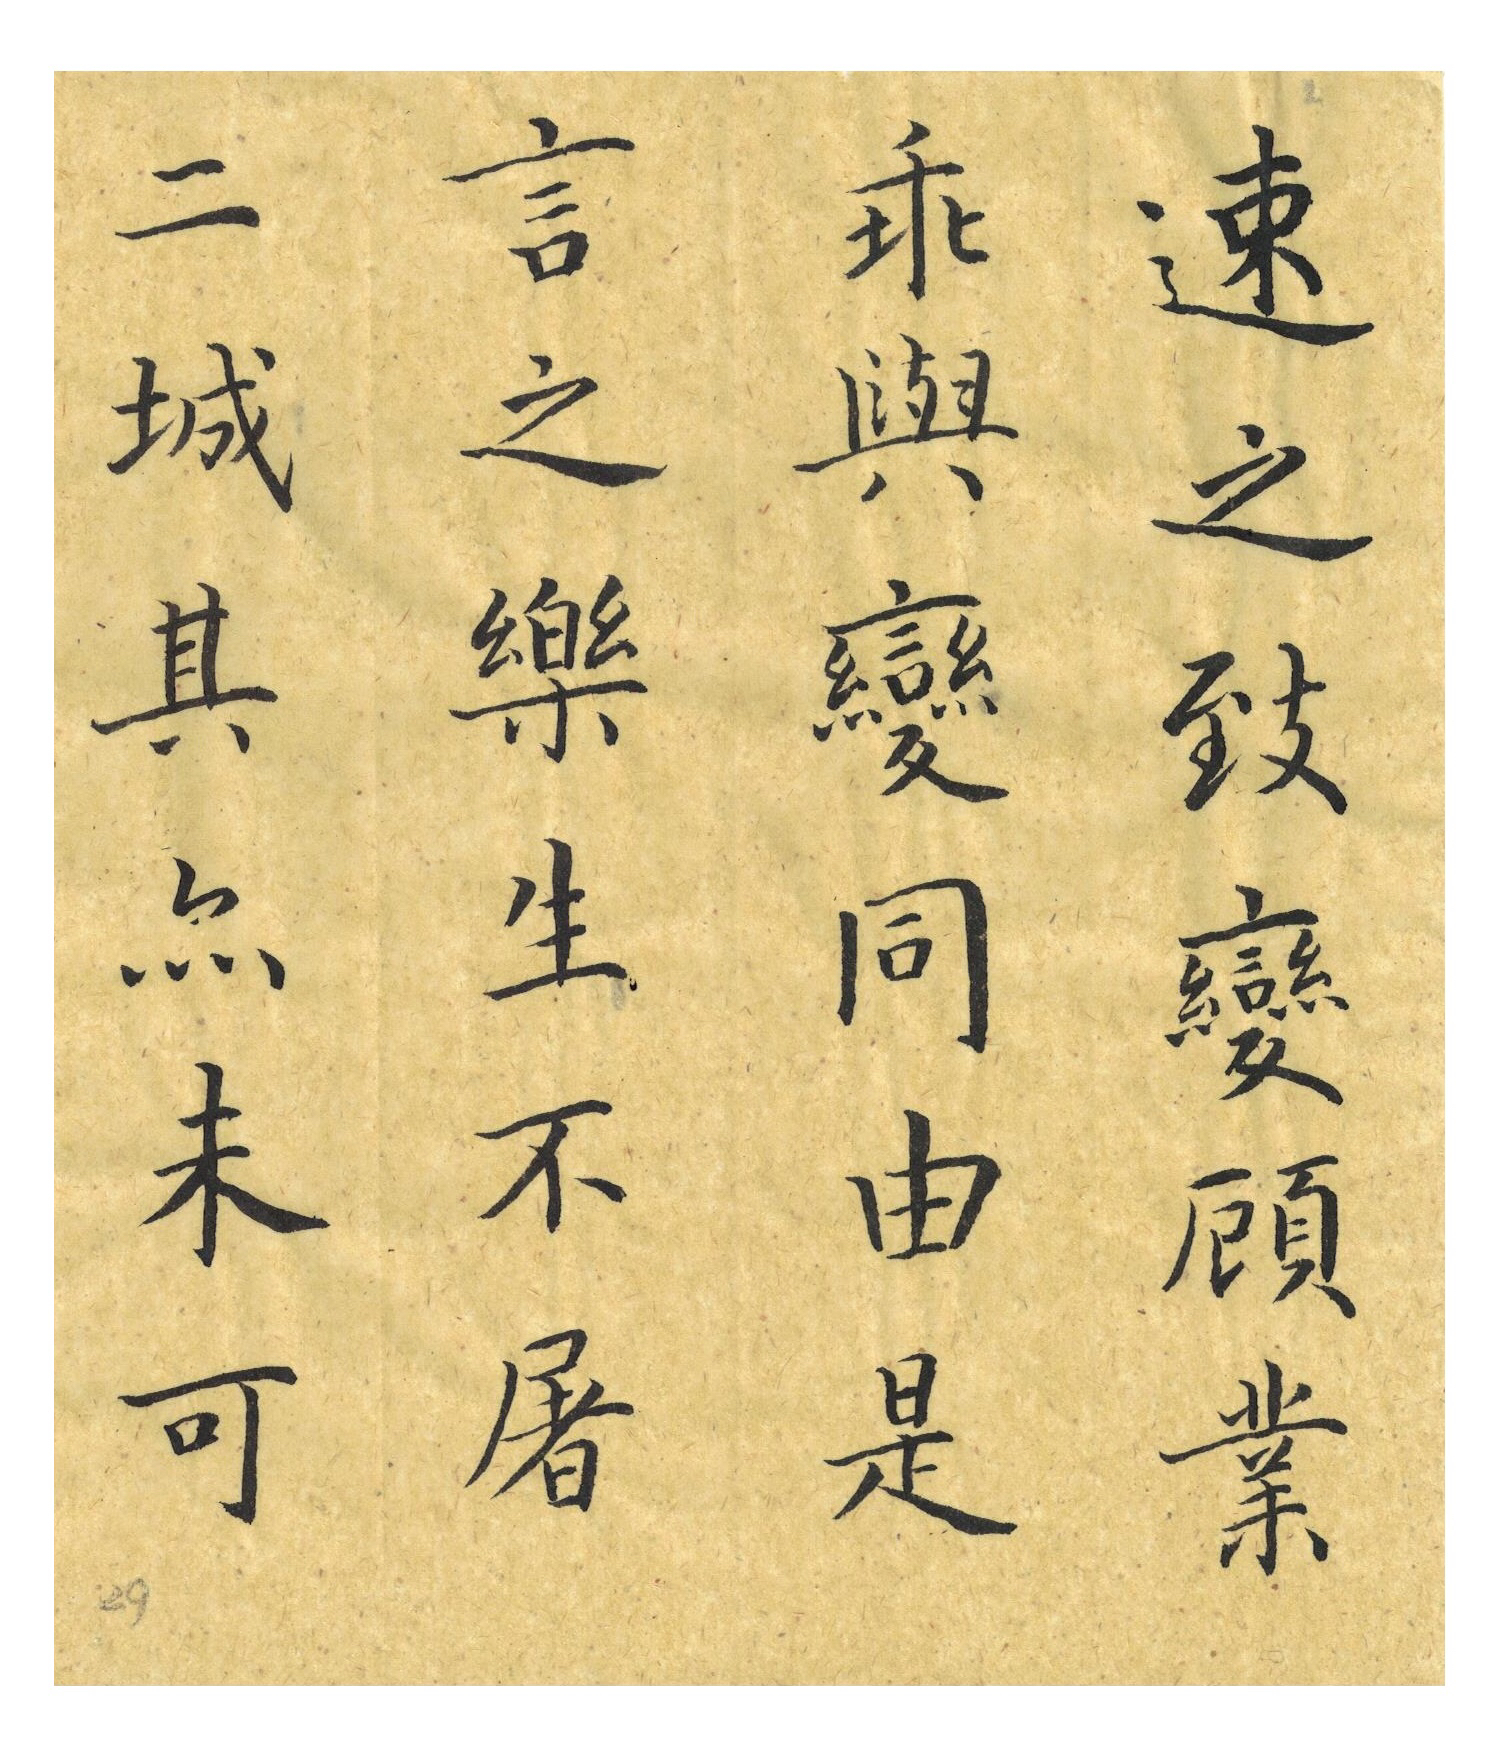 速之致變顧業
乖與變同由是
言之樂生不屠
二城其亦未可
29